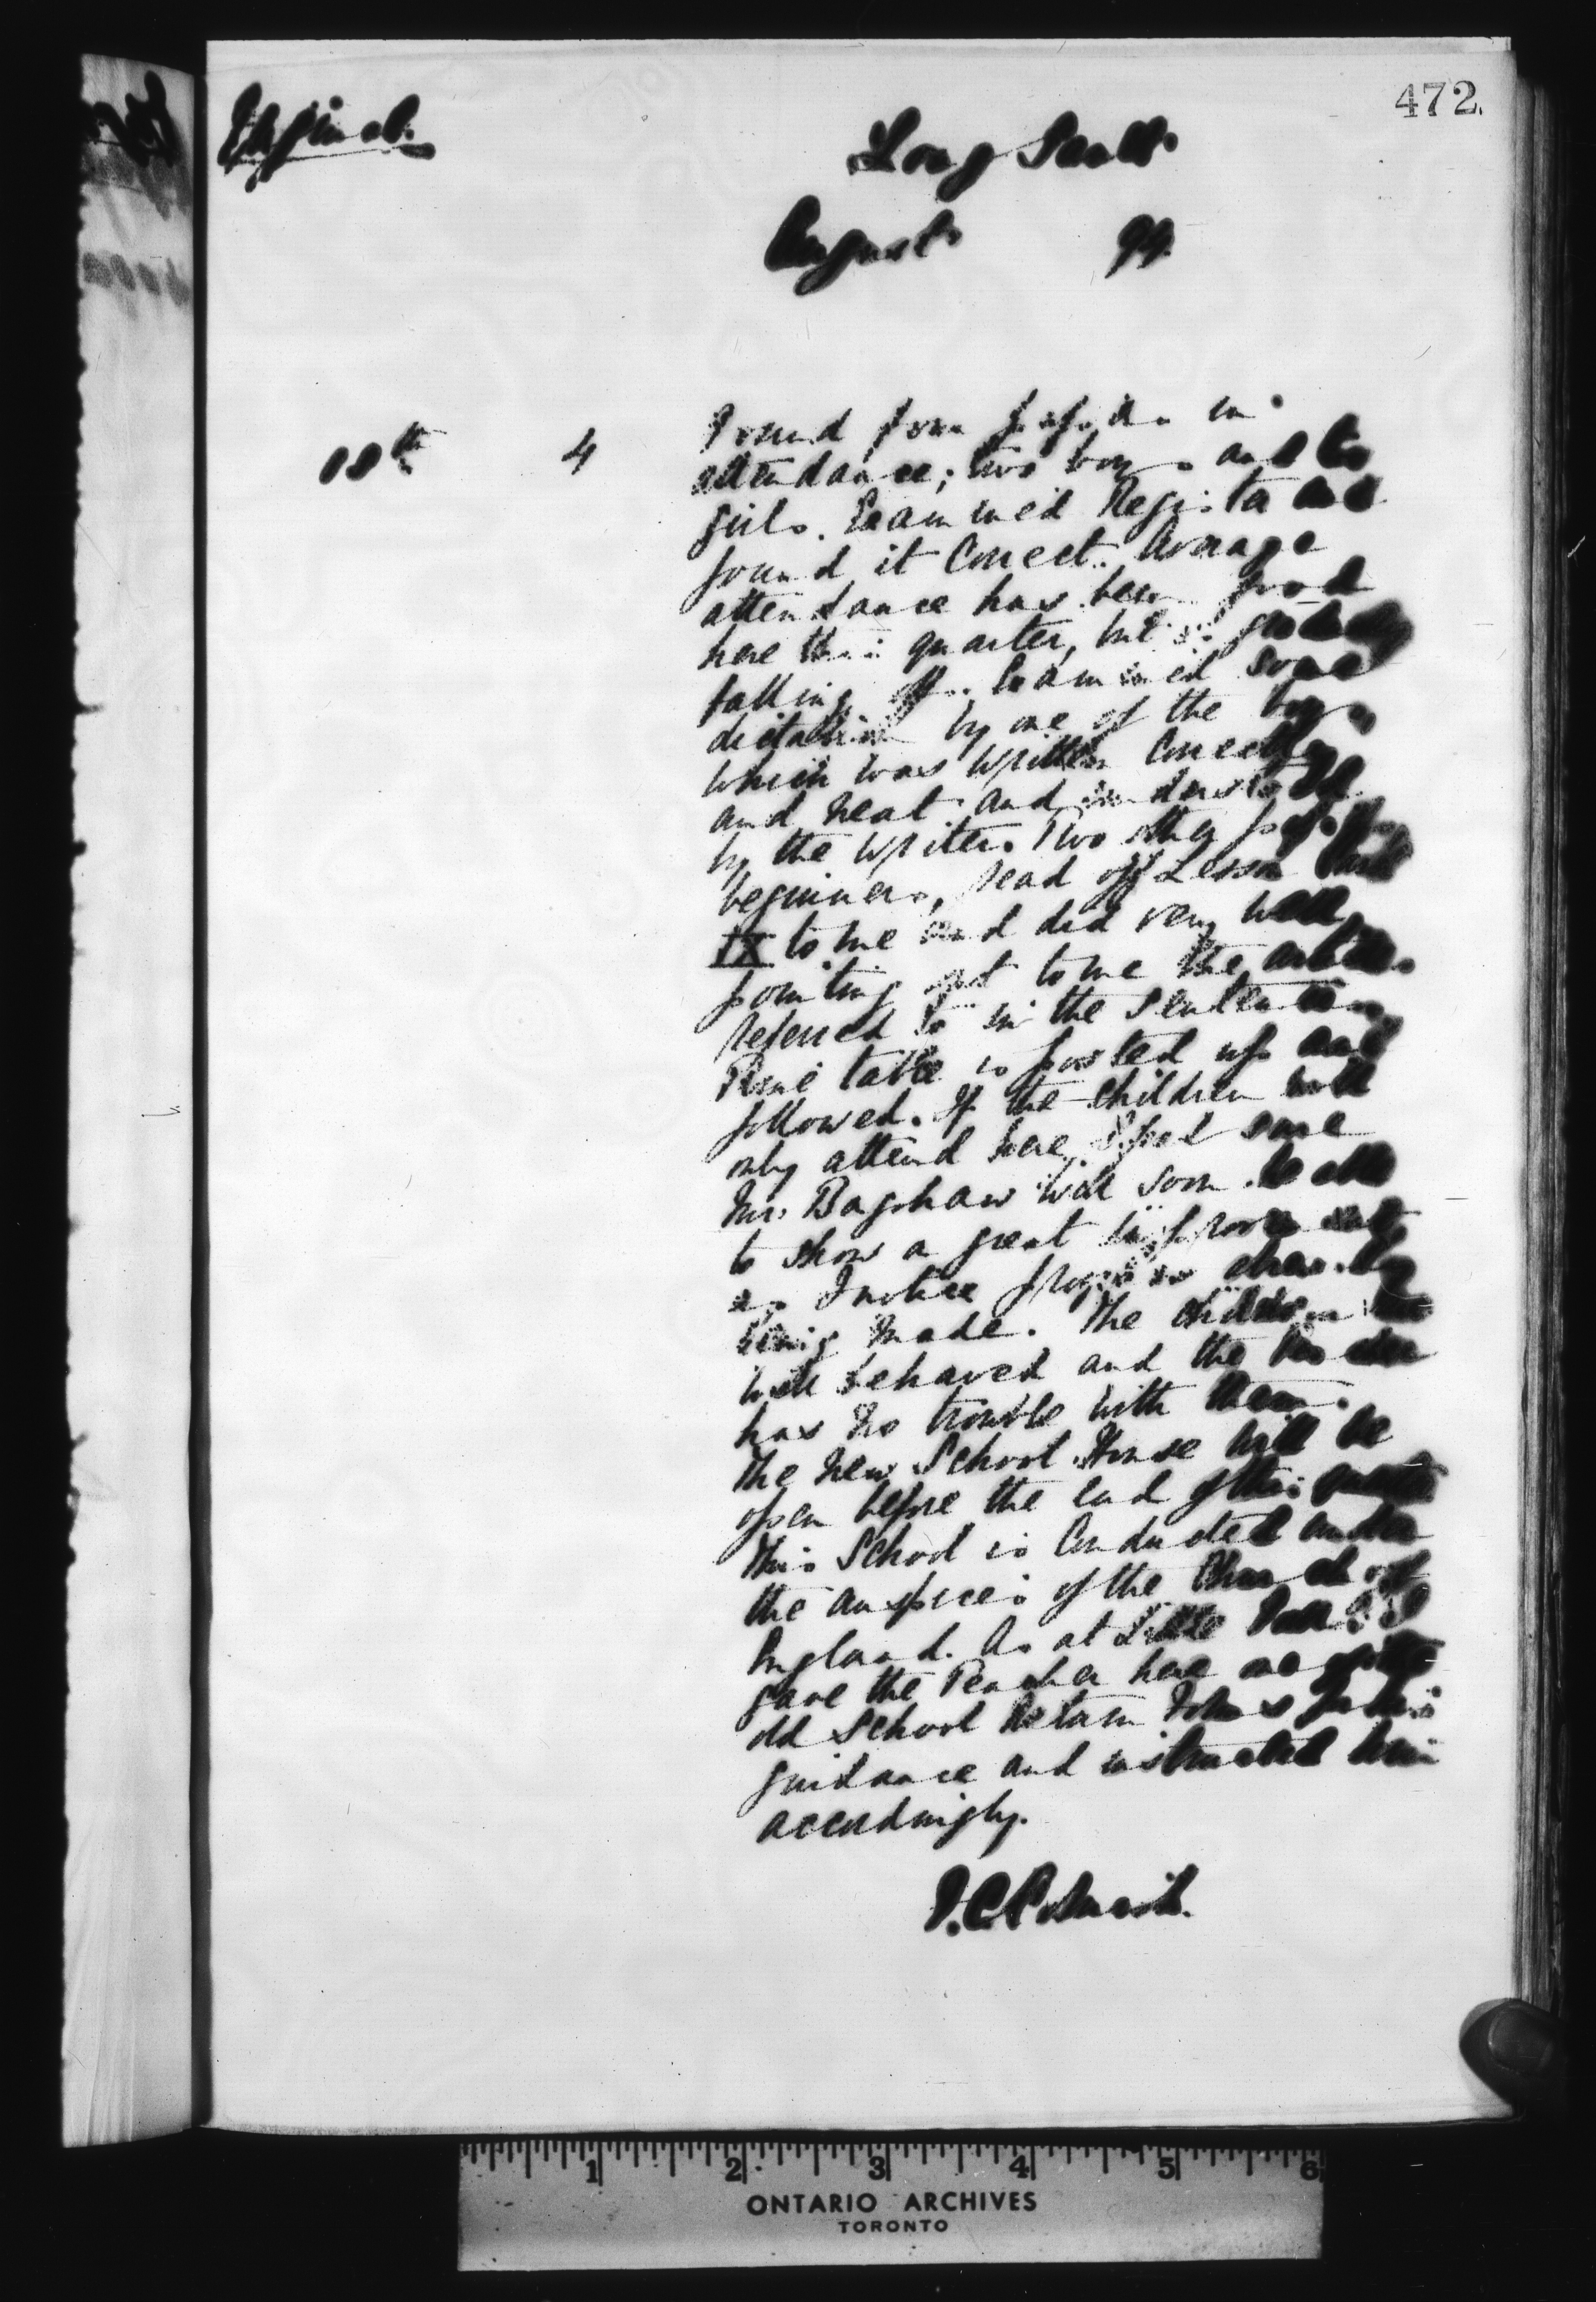 472.
Original.
Long Sault
August 99
18th 4 Found four pupils in
attendance; two boys and two
girls. Examined Register and
found it Correct. Average
attendance has been good
here this quarter, but is gradually
falling off. Examined some
dictation by one of the boys
which was written Correctly
and neat and understood
by the writer. Two other pupils,
beginners, read off Lesson Card
IX to me and did very well,
pointing out to me the articles
referred to in the sentences.
Time table is posted up and
followed. If the children will
only attend here, I feel sure
Mr. Bagshaw will soon be able
to show a great improvement,
as I notice progress
being made. The children
well behaved and the Teacher
has no trouble with them.
The new School House will be
open before the end of this quarter.
This School is Conducted under
the auspices of the Church of
England. As at Little Forks I
gave the Teacher here one of the
old School Return Forms for his
guidance and instructed him
accordingly.
ONTARIO ARCHIVES
TORONTO
1 2 3 4 5 6